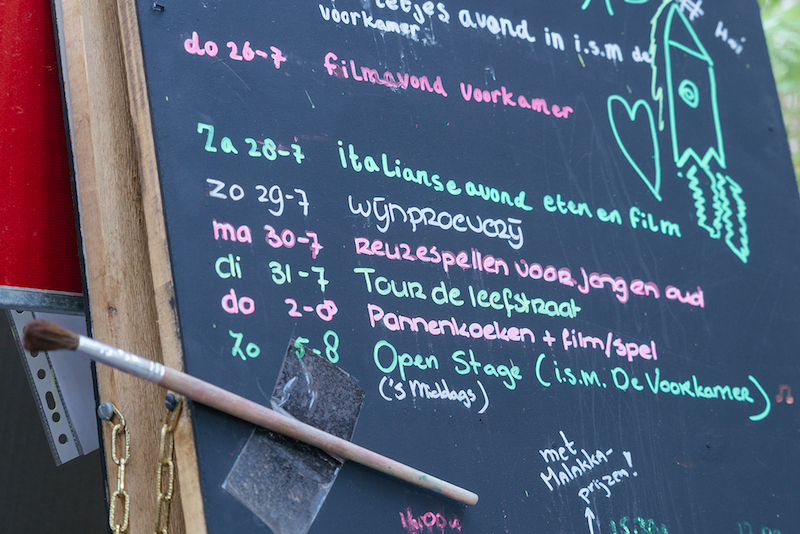 avond in i.s.m de
voorkamer.
# Hoi
do 26-7 filmavond voorkamer
Za 28-7 italiaanse avond eten en film
zo 29-7 wijnproeverij
ma 30-7 reuzespellen voor jong en oud
di 31-7 Tour de leefstraat
do 2-8 Pannenkoeken + film/spel
Zo 5-8 Open Stage (i.s.m. De Voorkamer)
('s Middags)
met
Malakka-
prijzen!
16:00u